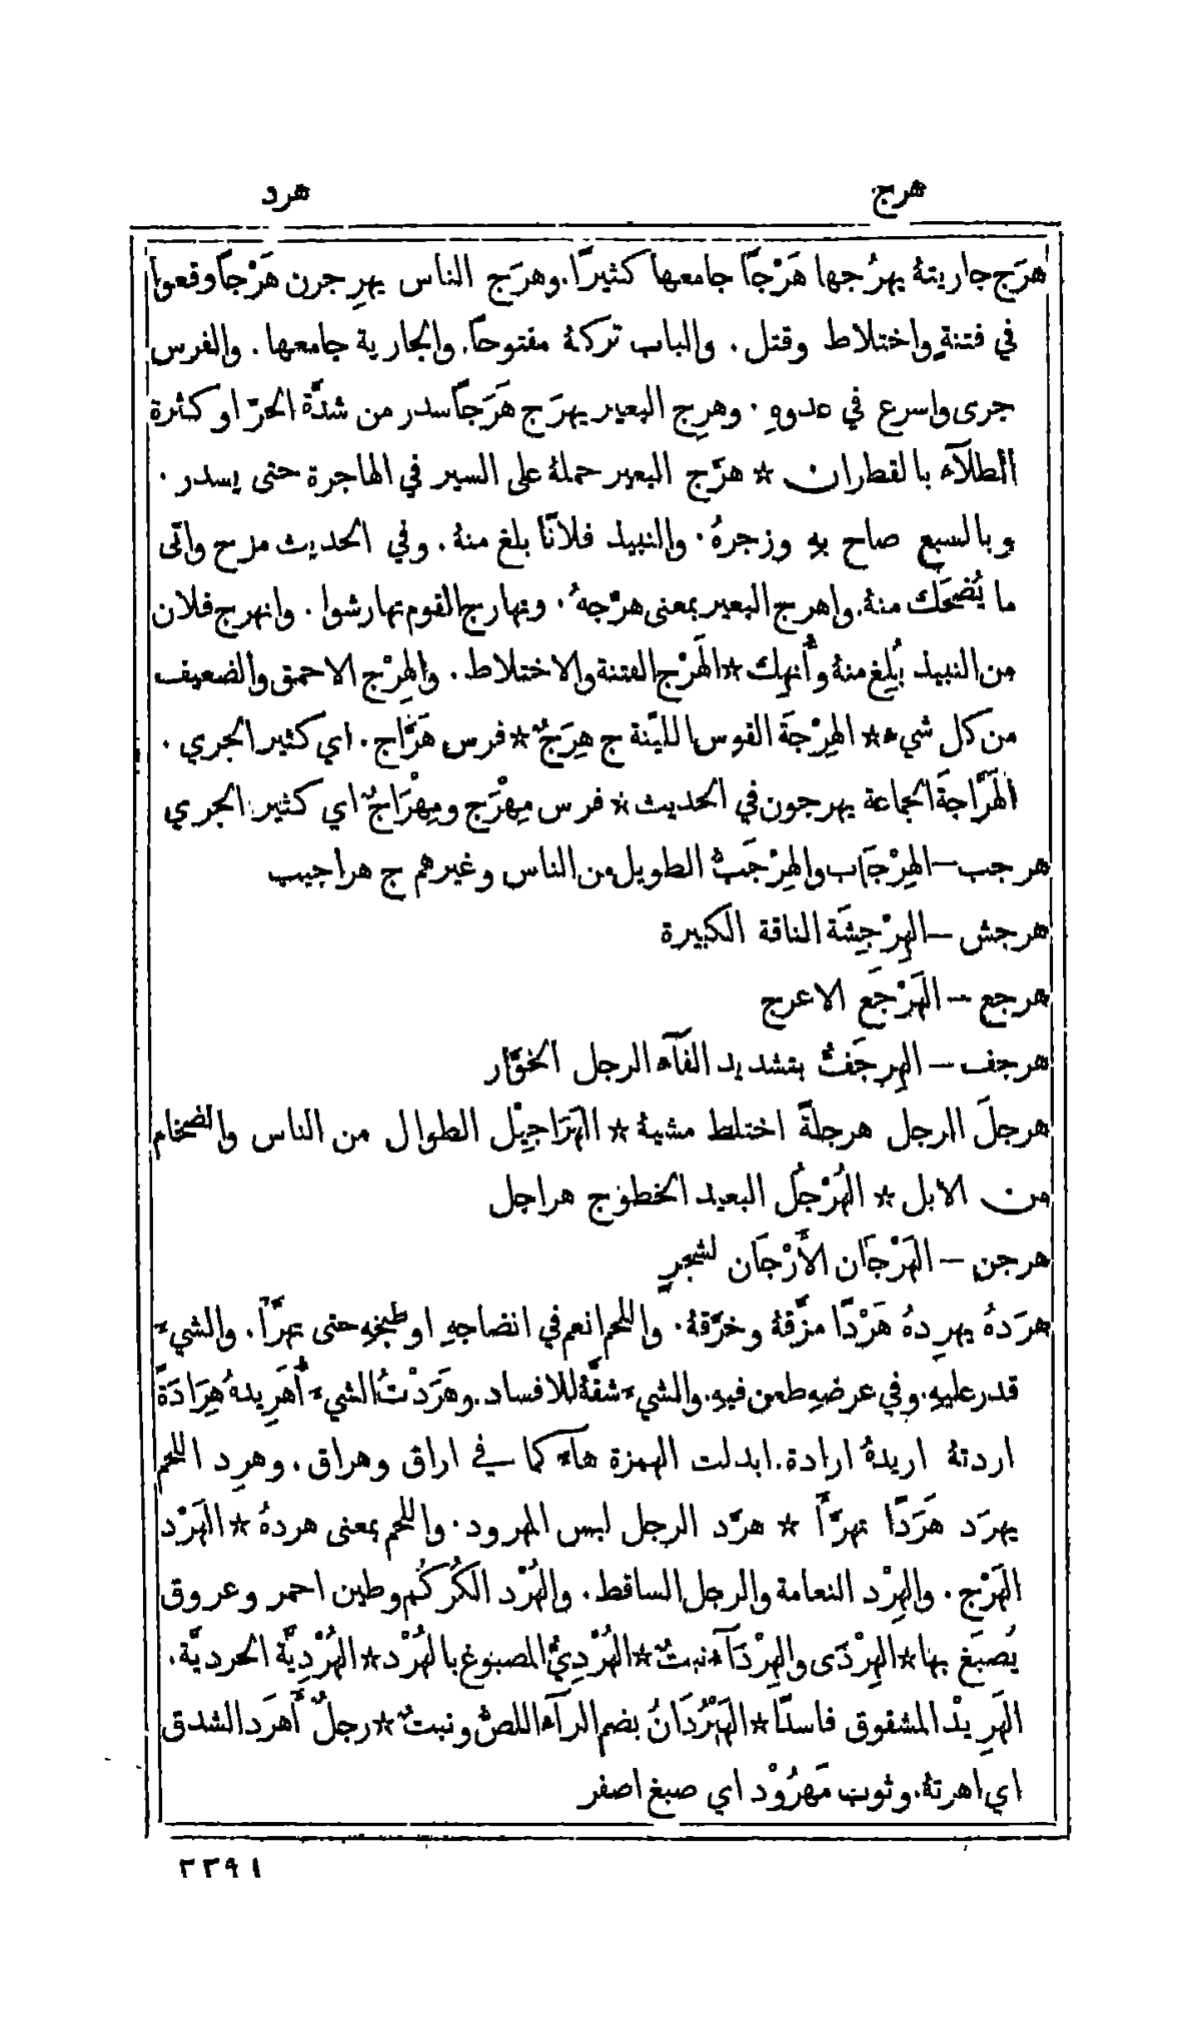 هرج هرد
هرَج جاريتهُ يهرُجها هَرْجًا جامعها كثيرًا. وهرَج الناس يهرِجرن هَرْجاً وقعوا
في فتنةٍ واختلاط وقتل. والباب تركهُ مفتوحاً. والجارية جامعها. والفرس
جرى واسرع في عدوهِ. وهرِج البعير يهرَج هَرَجاً سدر من شدَّة الحرّ او كثرة
الطلآء بالقطران ☆ هرَّج البعير حملهُ على السير في الهاجرة حتى يسدر.
وبالسبع صاح بهِ وزجرهُ. والنبيذ فلانًا بلغ منهُ. وفي الحديث مزح واتى
ما يُضحَك منهُ. واهرج البعير بمعنى هرّجهُ. وتهارج القوم تهارشوا. وانهرج فلان
من النبيذ بُلِغ منهُ وأُنهِك ☆ الهَرْج الفتنة والاختلاط. والهِرْج الاحمق والضعيف
من كل شيء ☆ الهِرْجَة القوس الليّنة ج هِرَجٌ ☆ فرس هَرَّاج. اي كثير الجري.
الهَرَّاجَة الجماعة يهرجون في الحديث ☆ فرس مِهْرَج ومِهْرَاجٌ اي كثير الجري
هرجب – الهِرْجَاب والهِرْجَبُّ الطويل من الناس وغيرهم ج هراجيب
هرجش – الهِرْجِشَة الناقة الكبيرة
هرجع – الهَرْجَع الاعرج
هرجف – الهِرجَفُّ بتشديد الفآء الرجل الخوَّار
هرجلَ الرجل هرجلةً اختلط مشيهُ ☆ الهَرَاجِيْل الطوال من الناس والضخام
من الابل ☆ الهُرْجُل البعيد الخطو ج هراجل
هرجن – الهَرْجَان الأَرْجَان لشجرٍ
هرَدهُ يهرِدهُ هَرْدًا مزَّقهُ وخرَّقهُ. واللحم انعم في انضاجهِ او طبخهِ حتى تهرَّأ. والشيء
قدر عليهِ. وفي عرضهِ طعن فيهِ. والشيء شقَّهُ للافساد. وهَرَدْتُ الشيء أُهَرِيدهُ هِرَادَةً
اردتهُ اريدهُ ارادة. ابدلت الهمزة هآء كما في اراق وهراق. وهرِد اللحم
يهرَد هَرَدًا تهرَّأَ ☆ هرَّد الرجل لبس المهرود. واللحم بمعنى هردهُ ☆ الهَرْد
الهَرْج. والهِرْد النعامة والرجل الساقط. والهُرْد الكُرْكُم وطين احمر وعروق
يُصبَغ بها ☆ الهِرْدَى والهِرْدَآء نبتٌ ☆ الهُرْدِيُّ المصبوغ بالهُرْد ☆ الهُرْدِيَّة الحرديَّة.
الهَرِيْد المشقوق فاسدًا ☆ الهَيْرُدَانُ بضم الرآء اللصّ ونبتٌ ☆ رجلٌ أَهرَد الشدق
اي اهرتهُ. وثوب مَهرُوْد اي صبغ اصفر
٢٢٩١